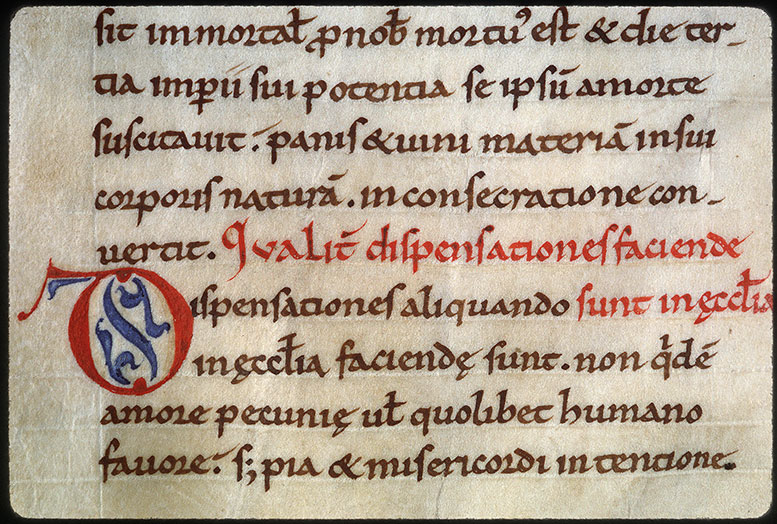 sit immortal̄ ꝓ nob̄ mortuꝰ est & die ter-
tia imꝑii sui potentia se ipsū a morte
suscitauit. panis & uini materiā in sui
corporis naturā. in consecratione con-
uertit. Qualit̄ dispensationes faciende
Dispensationes aliquando sunt in ęccl̄ia
in ęccl̄ia faciendę sunt. non qͥdē
amore pecunię ul̄ quolibet humano
fauore. s; pia & misericordi intentione.